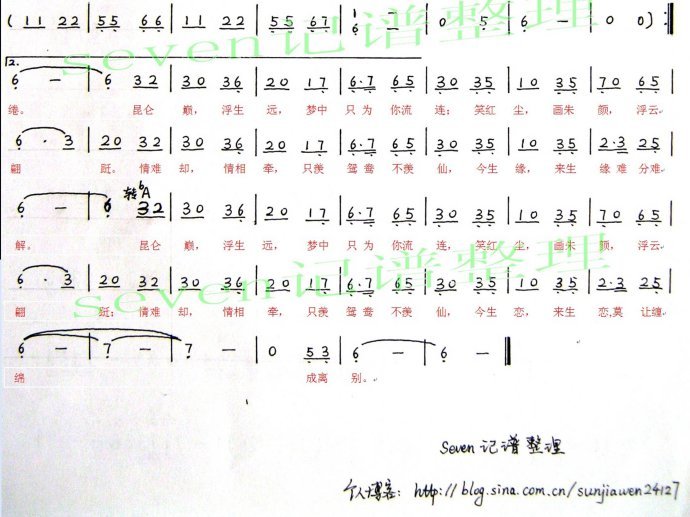 ( 11 22 | 55 66 | 11 22 | 55 67 | 1 6 - | 0 5 | 6 - | 0 0 ) :||
seven记谱整理
2.
6 - | 6 32 | 30 36 | 20 17 | 6·7 65 | 30 35 | 10 35 | 70 65
绻。 昆仑 巅， 浮生 远， 梦中 只为 你流 连； 笑红 尘， 画朱 颜， 浮云
6 · 3 | 20 32 | 30 36 | 20 17 | 6·7 65 | 30 35 | 10 35 | 2·3 25
翩 跹。 情难 却， 情相 牵， 只羡 鸳鸯 不羡 仙， 今生 缘， 来生 缘难 分难
转♭A
6 - | 6 32 | 30 36 | 20 17 | 6·7 65 | 30 35 | 10 35 | 70 65
解。 昆仑 巅， 浮生 远， 梦中 只为 你流 连， 笑红 尘， 画朱 颜， 浮云
6 · 3 | 20 32 | 30 36 | 20 17 | 6·7 65 | 30 35 | 10 35 | 2·3 25
seven记谱整理
翩 跹； 情难 却， 情相 牵， 只羡 鸳鸯 不羡 仙， 今生 恋， 来生 恋,莫 让缠
6 - | 7 - | 7 - | 0 53 | 6 - | 6 - ||
绵 成离 别。
Seven 记谱整理
个人博客: http://blog.sina.com.cn/sunjiawen24127